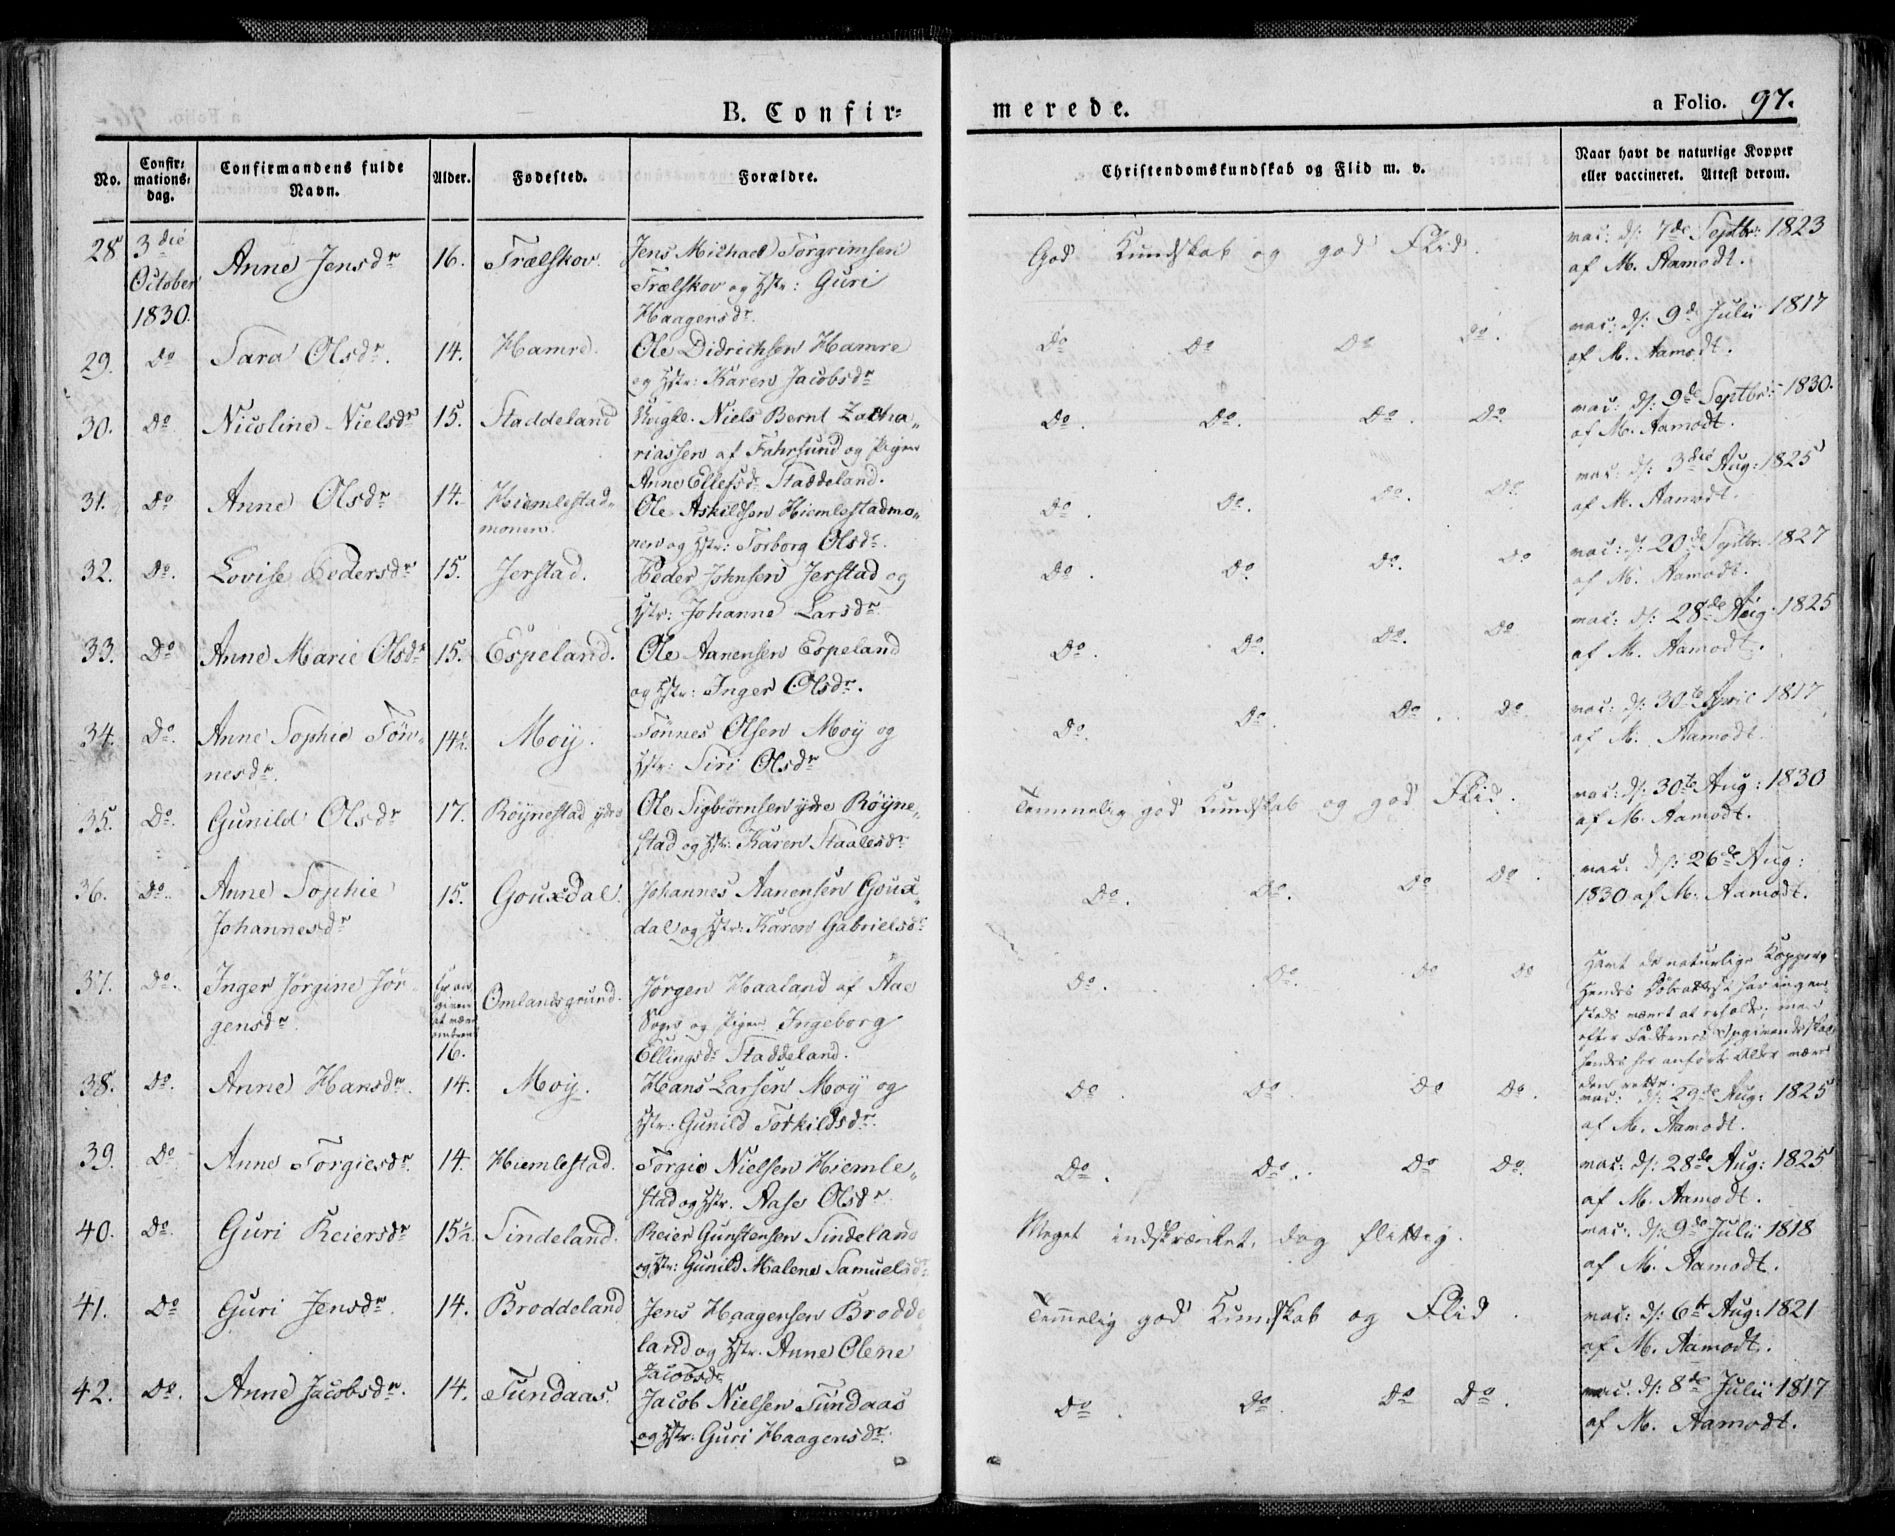 B. Confirmerede. a Folio. 97.
No. Confirmations-dag. Confirmandens fulde Navn. Alder. Fødested. Forældre. Christendomskundskab og Flid m. v. Naar havt de naturlige Kopper eller vaccineret. Attest derom.
28 3die October 1830. Anne Jensdr 16. Trælskov. Jens Michael Torgrimsen
Trælskov og Hstr: Guri
Haagensdr.
God Kundskab og god Flid. vac: d: 7de Septbr: 1823
af M. Aamodt.
29. Do Sara Olsdr. 14. Hamre. Ole Didrichsen Hamre
og Hstr: Karen Jacobsdr
Do Do Do Do. vac: d: 9de Julii 1817
af M. Aamodt.
30. Do Nicoline Nielsdr 15. Staddeland Ungk. Niels Bernt Zacha„
riassen af Fahrsund og Pigen
Anne Ellefsdr Staddeland.
Do. Do. Do. Do. vac: d: 9de Septbr: 1830.
af M. Aamodt.
31. Do Anne Olsdr 14. Hiemlestad„
monen.
Ole Askildsen Hiemlestadmo„
nen og Hstr: Torborg Olsdr.
Do. Do. Do. Do. vac: d: 3die Aug: 1825
af M. Aamodt.
32. Do. Lovise Pedersdr 15. Jerstad. Peder Johnsen Jerstad og
Hstr: Johanne Larsdr.
Do. Do. Do. Do vac: d: 20de Septbr. 1827
af M. Aamodt.
33. Do Anne Marie Olsdr 15. Espeland. Ole Aanensen Espeland
og Hstr: Inger Olsdr.
Do. Do. Do. Do vac: d: 28de Aug: 1825
af M. Aamodt.
34. Do. Anne Sophie Tøn„
nesdr.
14½ Moÿ. Tønnes Olsen Moÿ og
Hstr: Siri Olsdr
Do. Do. Do. Do. vac: d: 30te April 1817
af M. Aamodt.
35. Do. Gunild Olsdr 17. Røÿnestad ÿdre Ole Sigbiørnsen ÿdre Røÿne„
stad og Hstr: Karen Staalesdr
Temmelig god Kundskab og god Flid. vac: d: 30te Aug: 1830
af M. Aamodt.
36. Do. Anne Sophie
Johannesdr
15. Gouxdal. Johannes Aanensen Goux„
dal og Hstr: Karen Gabrielsdr
Do. Do. Do Do. vac. d: 26de Aug:
1830 af M. Aamodt.
37. Do. Inger Jørgine Jør„
gensdr.
Er an„
given
at være
omtrent
16.
Omlandsgrund. Jørgen Haaland af Aae
Sogn og Pigen Ingeborg
Ellingsdr Staddeland.
Do. Do. Do Do Havt de naturlige Kopper,
Hendes Døbeattest har ingen„
steds været at erholde; men
efter Faderens Opgivende skal
hendes her anførte Alder være
den rette.
38. Do. Anne Hansdr. 14. Moÿ. Hans Larsen Moÿ og
Hstr: Gunild Torkildsdr.
Do. Do. Do Do. vac: d: 29de Aug: 1825
af M. Aamodt.
39. Do. Anne Torgiesdr. 14. Hiemlestad. Torgie Nielsen Hiemle„
stad og Hstr. Aase Olsdr.
Do. Do. Do Do. vac: d: 28de Aug: 1825
af M. Aamodt.
40. Do. Guri Reiersdr 15½ Sindeland. Reier Gunstensen Sindeland
og Hstr: Gunild Malene Samuelsdr.
Meget indskrænket, dog flittig. vac: d: 9de Julii 1818
af M. Aamodt.
41. Do Guri Jensdr. 14. Broddeland Jens Haagensen Brodde
land og Hstr. Anne Olene
Jacobsdr
Temelig god Kundskab og Flid. vac: d: 6te Aug: 1821
af M. Aamodt.
42. Do. Anne Jacobsdr. 14. Tundaas. Jacob Nielsen Tundaas
og Hstr: Guri Haagensdr.
Do. Do. Do Do. vac. d: 8de Julii 1817
af M. Aamodt.